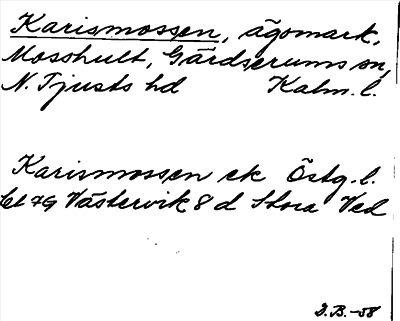 Karismossen, ägomark,
Mosshult, Gärdserums sn,
N. Tjusts hd Kalm. l.
Karismossen ek Östg. l.
bl 79 Västervik 8 d Stora Ved
I.B. -58